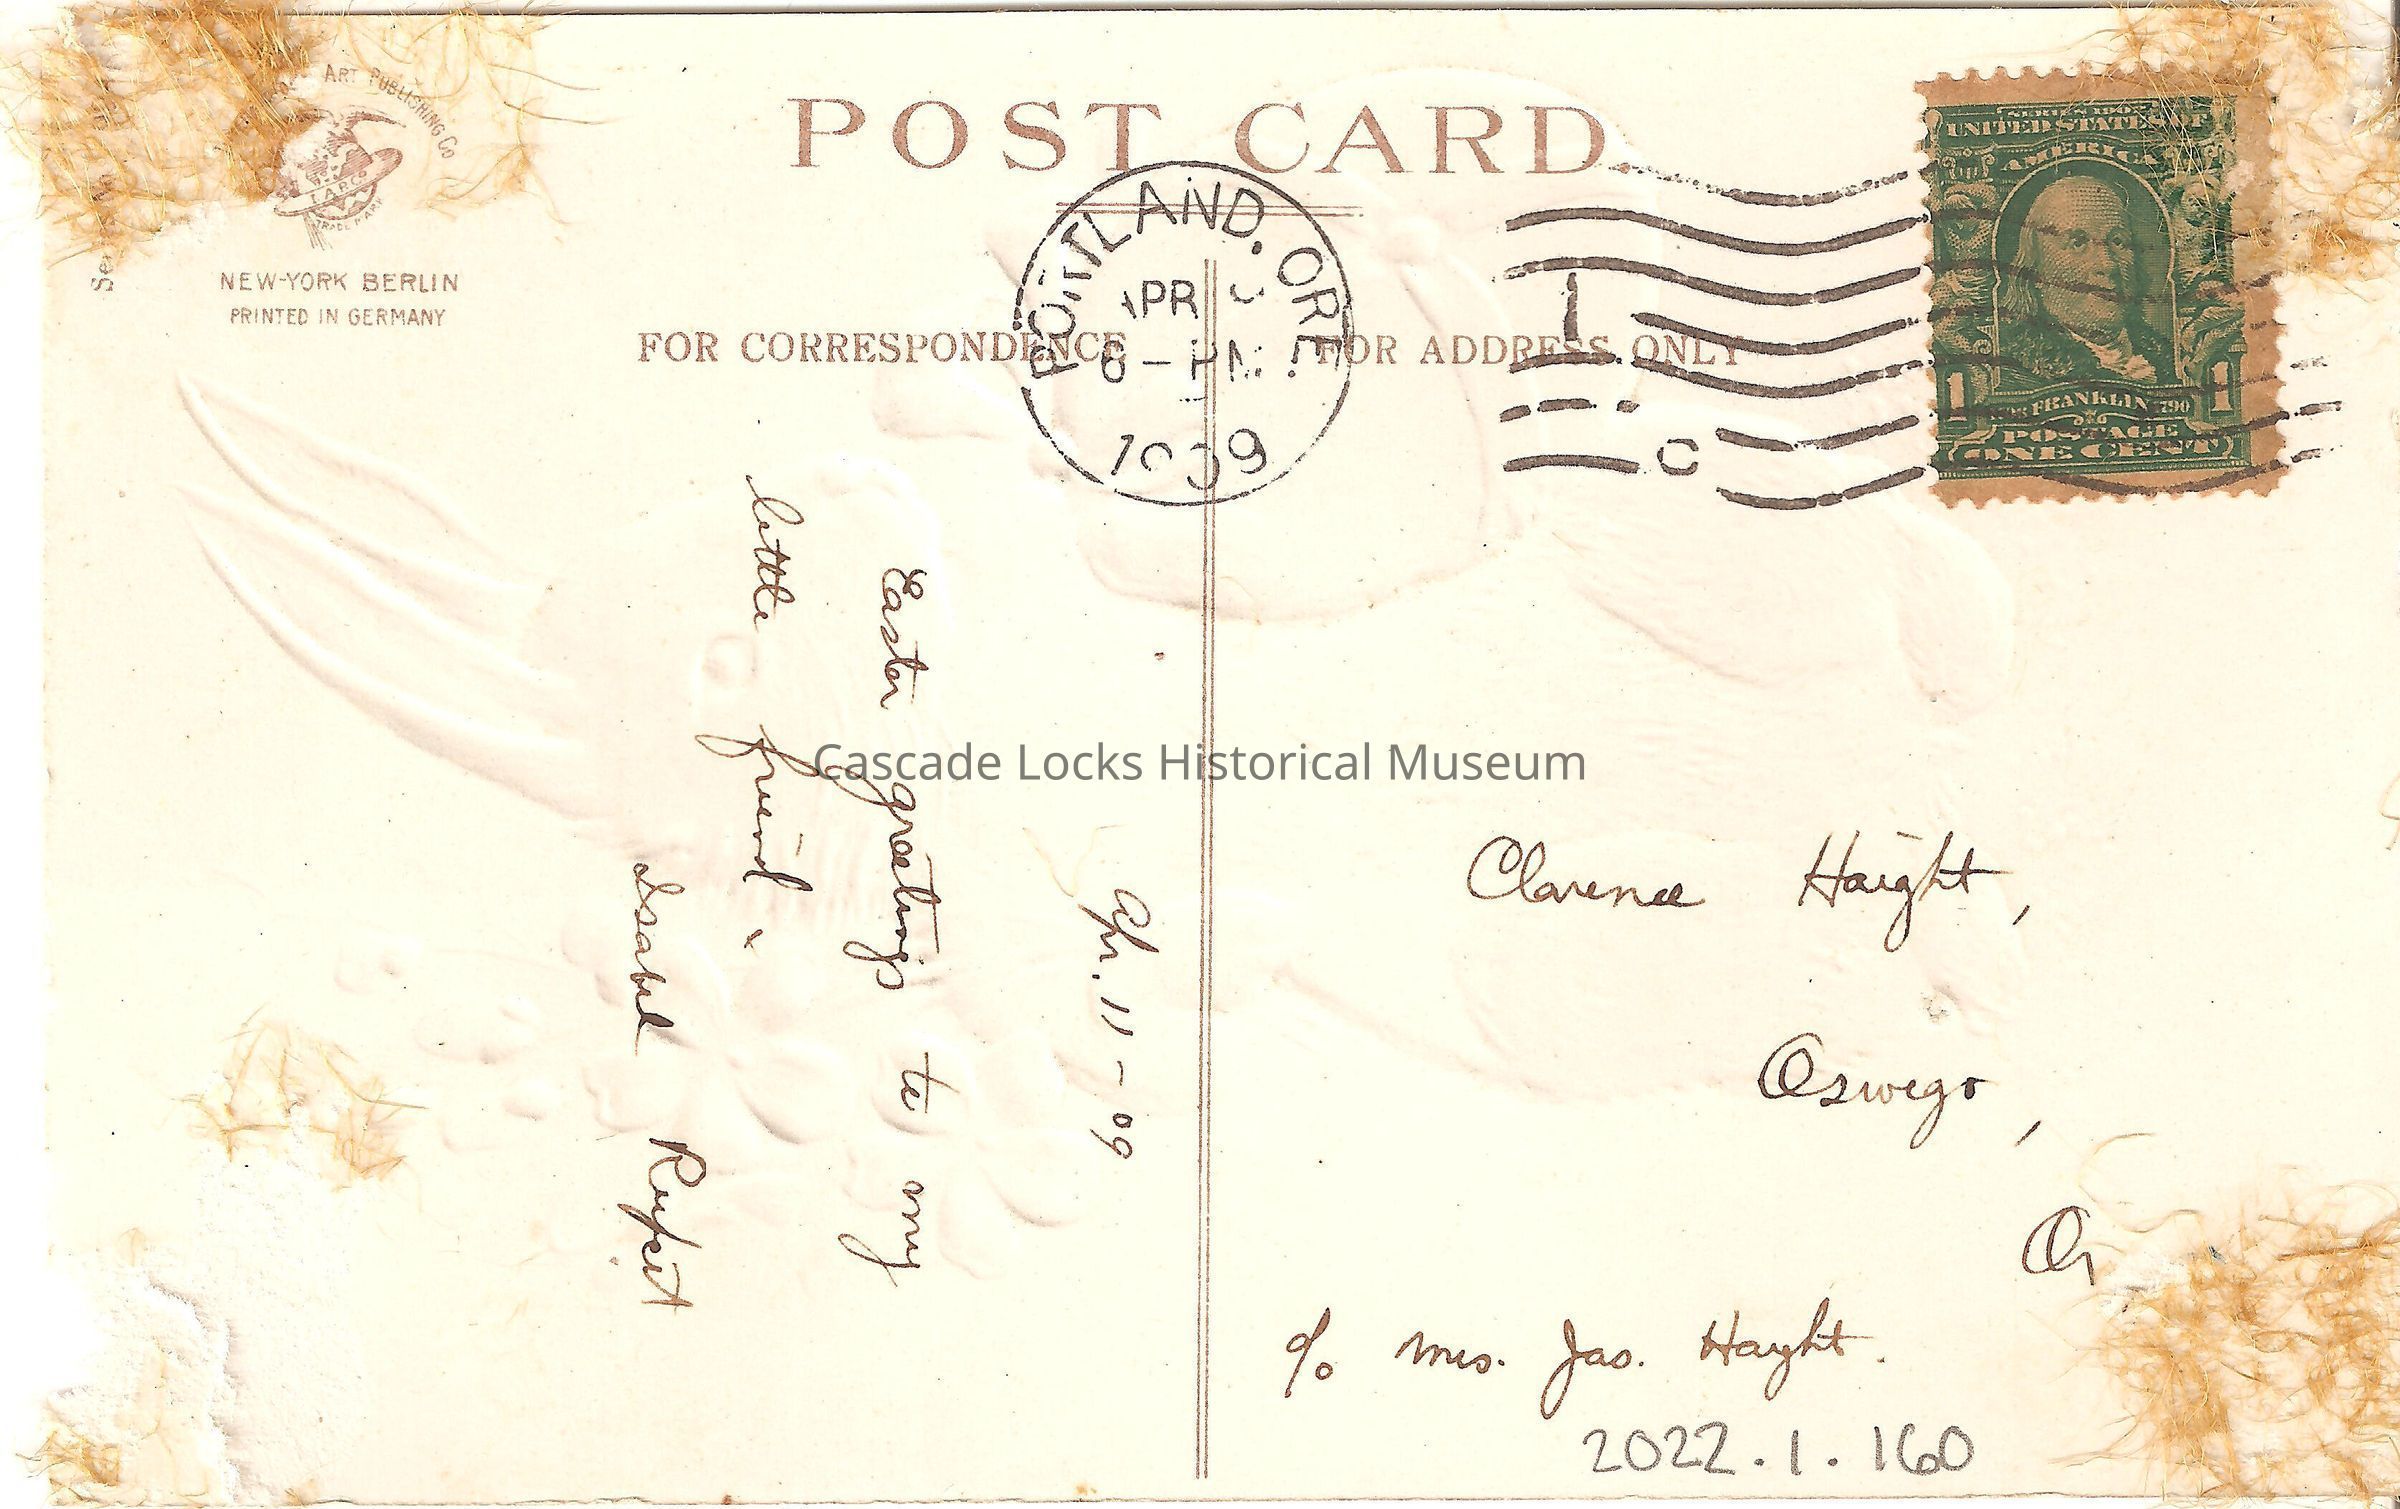 ART PUBLISHING Co
LAPCo
TRADE MARK
NEW-YORK BERLIN
PRINTED IN GERMANY
POST CARD
FOR CORRESPONDENCE
FOR ADDRESS ONLY
PORTLAND, ORE.
APR
6 - PM
1909
SERIES 1902
UNITED STATES OF
AMERICA
1 FRANKLIN 1790 1
POSTAGE
ONE CENT
Apr. 11 - 09
Easter greetings to my
little friend.
Isabel
Cascade Locks Historical Museum
Clarence Haight,
Oswego,
Or
c/o Mrs. Jas. Haight.
2022.1.160